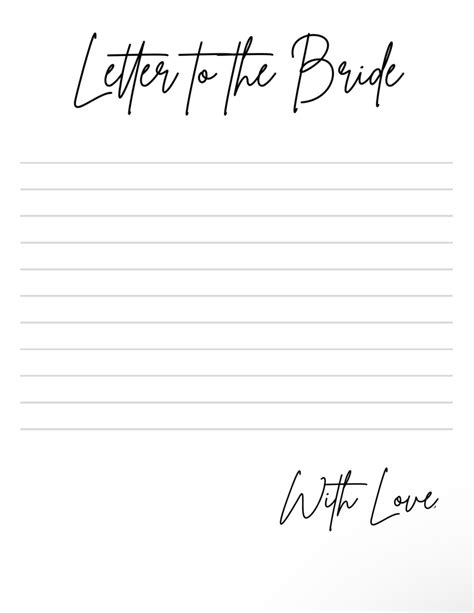 Letter to the Bride
With Love,